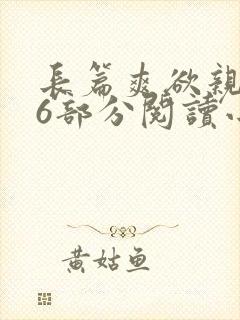 長篇爽欲親
6部分閱讀
黃姑魚